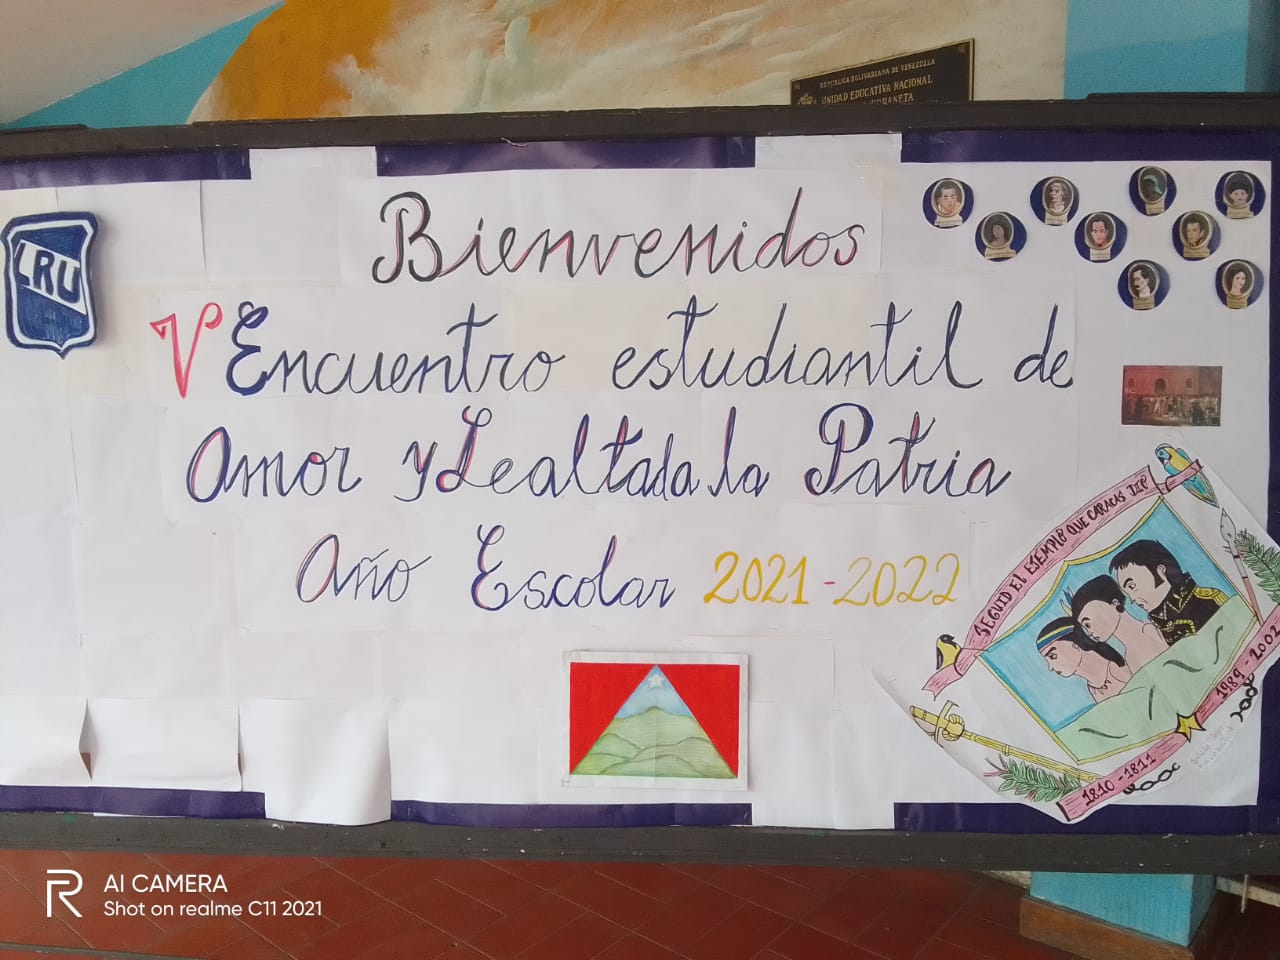 REPUBLICA BOLIVARIANA DE VENEZUELA
UNIDAD EDUCATIVA NACIONAL
URDANETA
LRU
Bienvenidos
V Encuentro estudiantil de
Amor y Lealtad a la Patria
Año Escolar 2021-2022
SEGUID EL EJEMPLO QUE CARACAS DIO
1989-2002
1810-1811
AI CAMERA
Shot on realme C11 2021